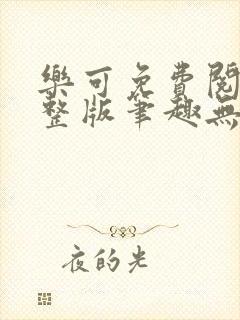 樂可免費閱
整版筆趣無
夜的光